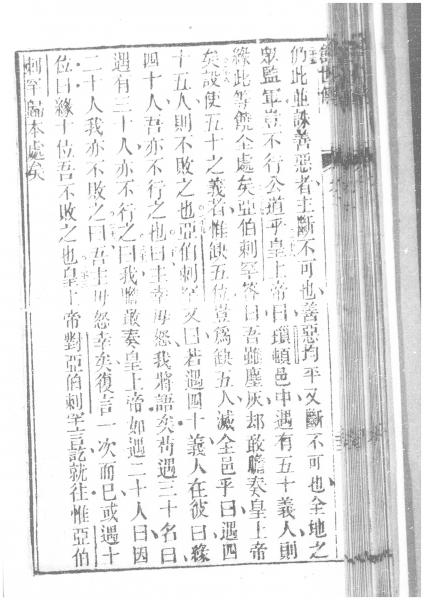 仍此並誅善惡者主斷不可也善惡均平又斷不可也全地之
監軍豈不行公道乎皇上帝曰瑣頓邑中遇有五十義人則
緣此等饒全處矣亞伯剌罕答曰吾雖塵灰却敢膽奏皇上帝
矣設使五十之義者惟缺五位豈爲缺五人滅全邑乎曰遇四
十五人則不敗之也亞伯剌罕又曰若遇四十義人在彼曰緣
四十人吾亦不行之也曰主幸毋怒我將語矣苟遇三十名曰
遇有三十人亦不行之曰我膽敢奏皇上帝如遇二十人曰因
二十人我亦不敗之曰吾主毋怒幸矣復言一次而已或遇十
位曰緣十位吾不敗之也皇上帝對亞伯剌罕言訖就往惟亞伯
剌罕歸本處矣